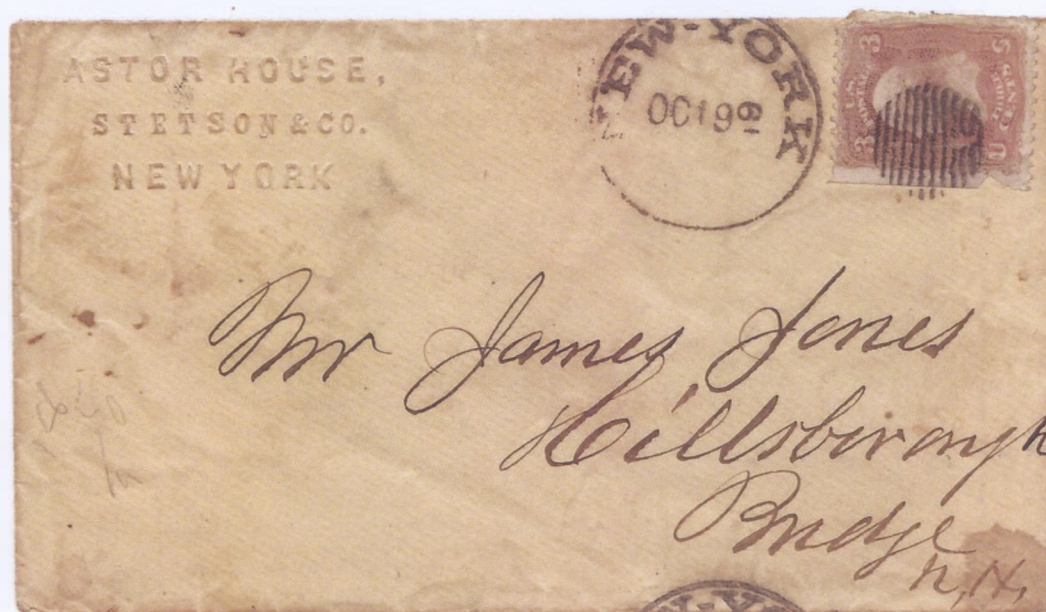 ASTOR HOUSE,
STETSON & CO.
NEW YORK
NEW-YORK
OCT 19
3
3
Mr James Jones
Hillsborough
Bridge
N, H,